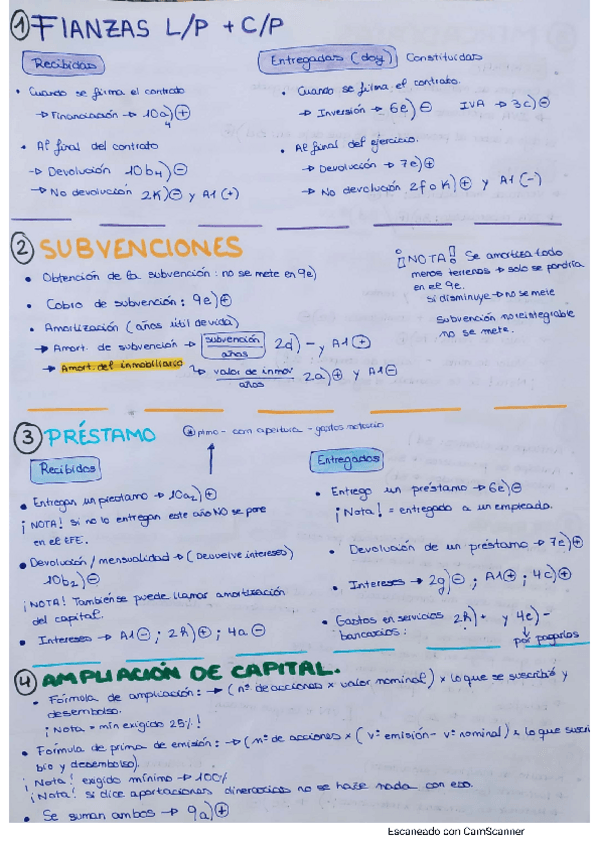 ① FIANZAS L/P + C/P
Recibidas
• Cuando se firma el contrato
→ Financiación → 10a)⊕
4
• Al final del contrato
→ Devolución 10b4)⊖
→ No devolución 2k)⊖ y A1(+)
Entregadas (doy) Constituidas
• Cuando se firma el contrato.
→ Inversión → 6e)⊖ IVA → 3c)⊖
• Al final del ejercicio.
→ Devolución → 7e)⊕
→ No devolución 2f o k)⊕ y A1(-)
② SUBVENCIONES
• Obtención de la subvención: no se mete en 9e)
• Cobro de subvención: 9e)⊕
• Amortización (años útil de vida)
→ Amort. de subvención → subvención / años 2d) - y A1⊕
→ Amort. del inmobiliario → valor de inmov / años 2a)⊕ y A1⊖
¡¡NOTA!! Se amortiza todo
menos terrenos → solo se pondría
en el 9e.
si disminuye → no se mete
Subvención no reintegrable
no se mete.
③ PRÉSTAMO
- com apertura - gastos notario
Recibidos
• Entregan un prestamo → 10a2)⊕
¡NOTA! si no lo entregan este año NO se pone
en el EFE.
• Devolución / mensualidad → (Devuelve intereses)
10b2)⊖
¡NOTA! También se puede llamar amortización
del capital.
• Intereses → A1⊖; 2h)⊕; 4a⊖
Entregados
• Entrego un préstamo → 6e)⊖
¡Nota! = entregado a un empleado.
• Devolución de un préstamo → 7e)⊕
• Intereses → 2g)⊖; A1⊕; 4c)⊕
• Gastos en servicios 2h)+ y 4e)-
bancarios: por pagarlos
④ AMPLIACIÓN DE CAPITAL.
• Fórmula de ampliación: → (nº de acciones x valor nominal) x lo que se suscribió y
desembolso.
¡Nota = min exigido 25%!
• Formula de prima de emisión: → (nº de acciones x (vº emisión - vº nominal) x lo que suscri
bio y desembolso).
¡Nota! exigido mínimo → 100%
¡Nota! si dice aportaciones dinerarias no se hace nada con eso.
• Se suman ambos → 9a)⊕
Escaneado con CamScanner